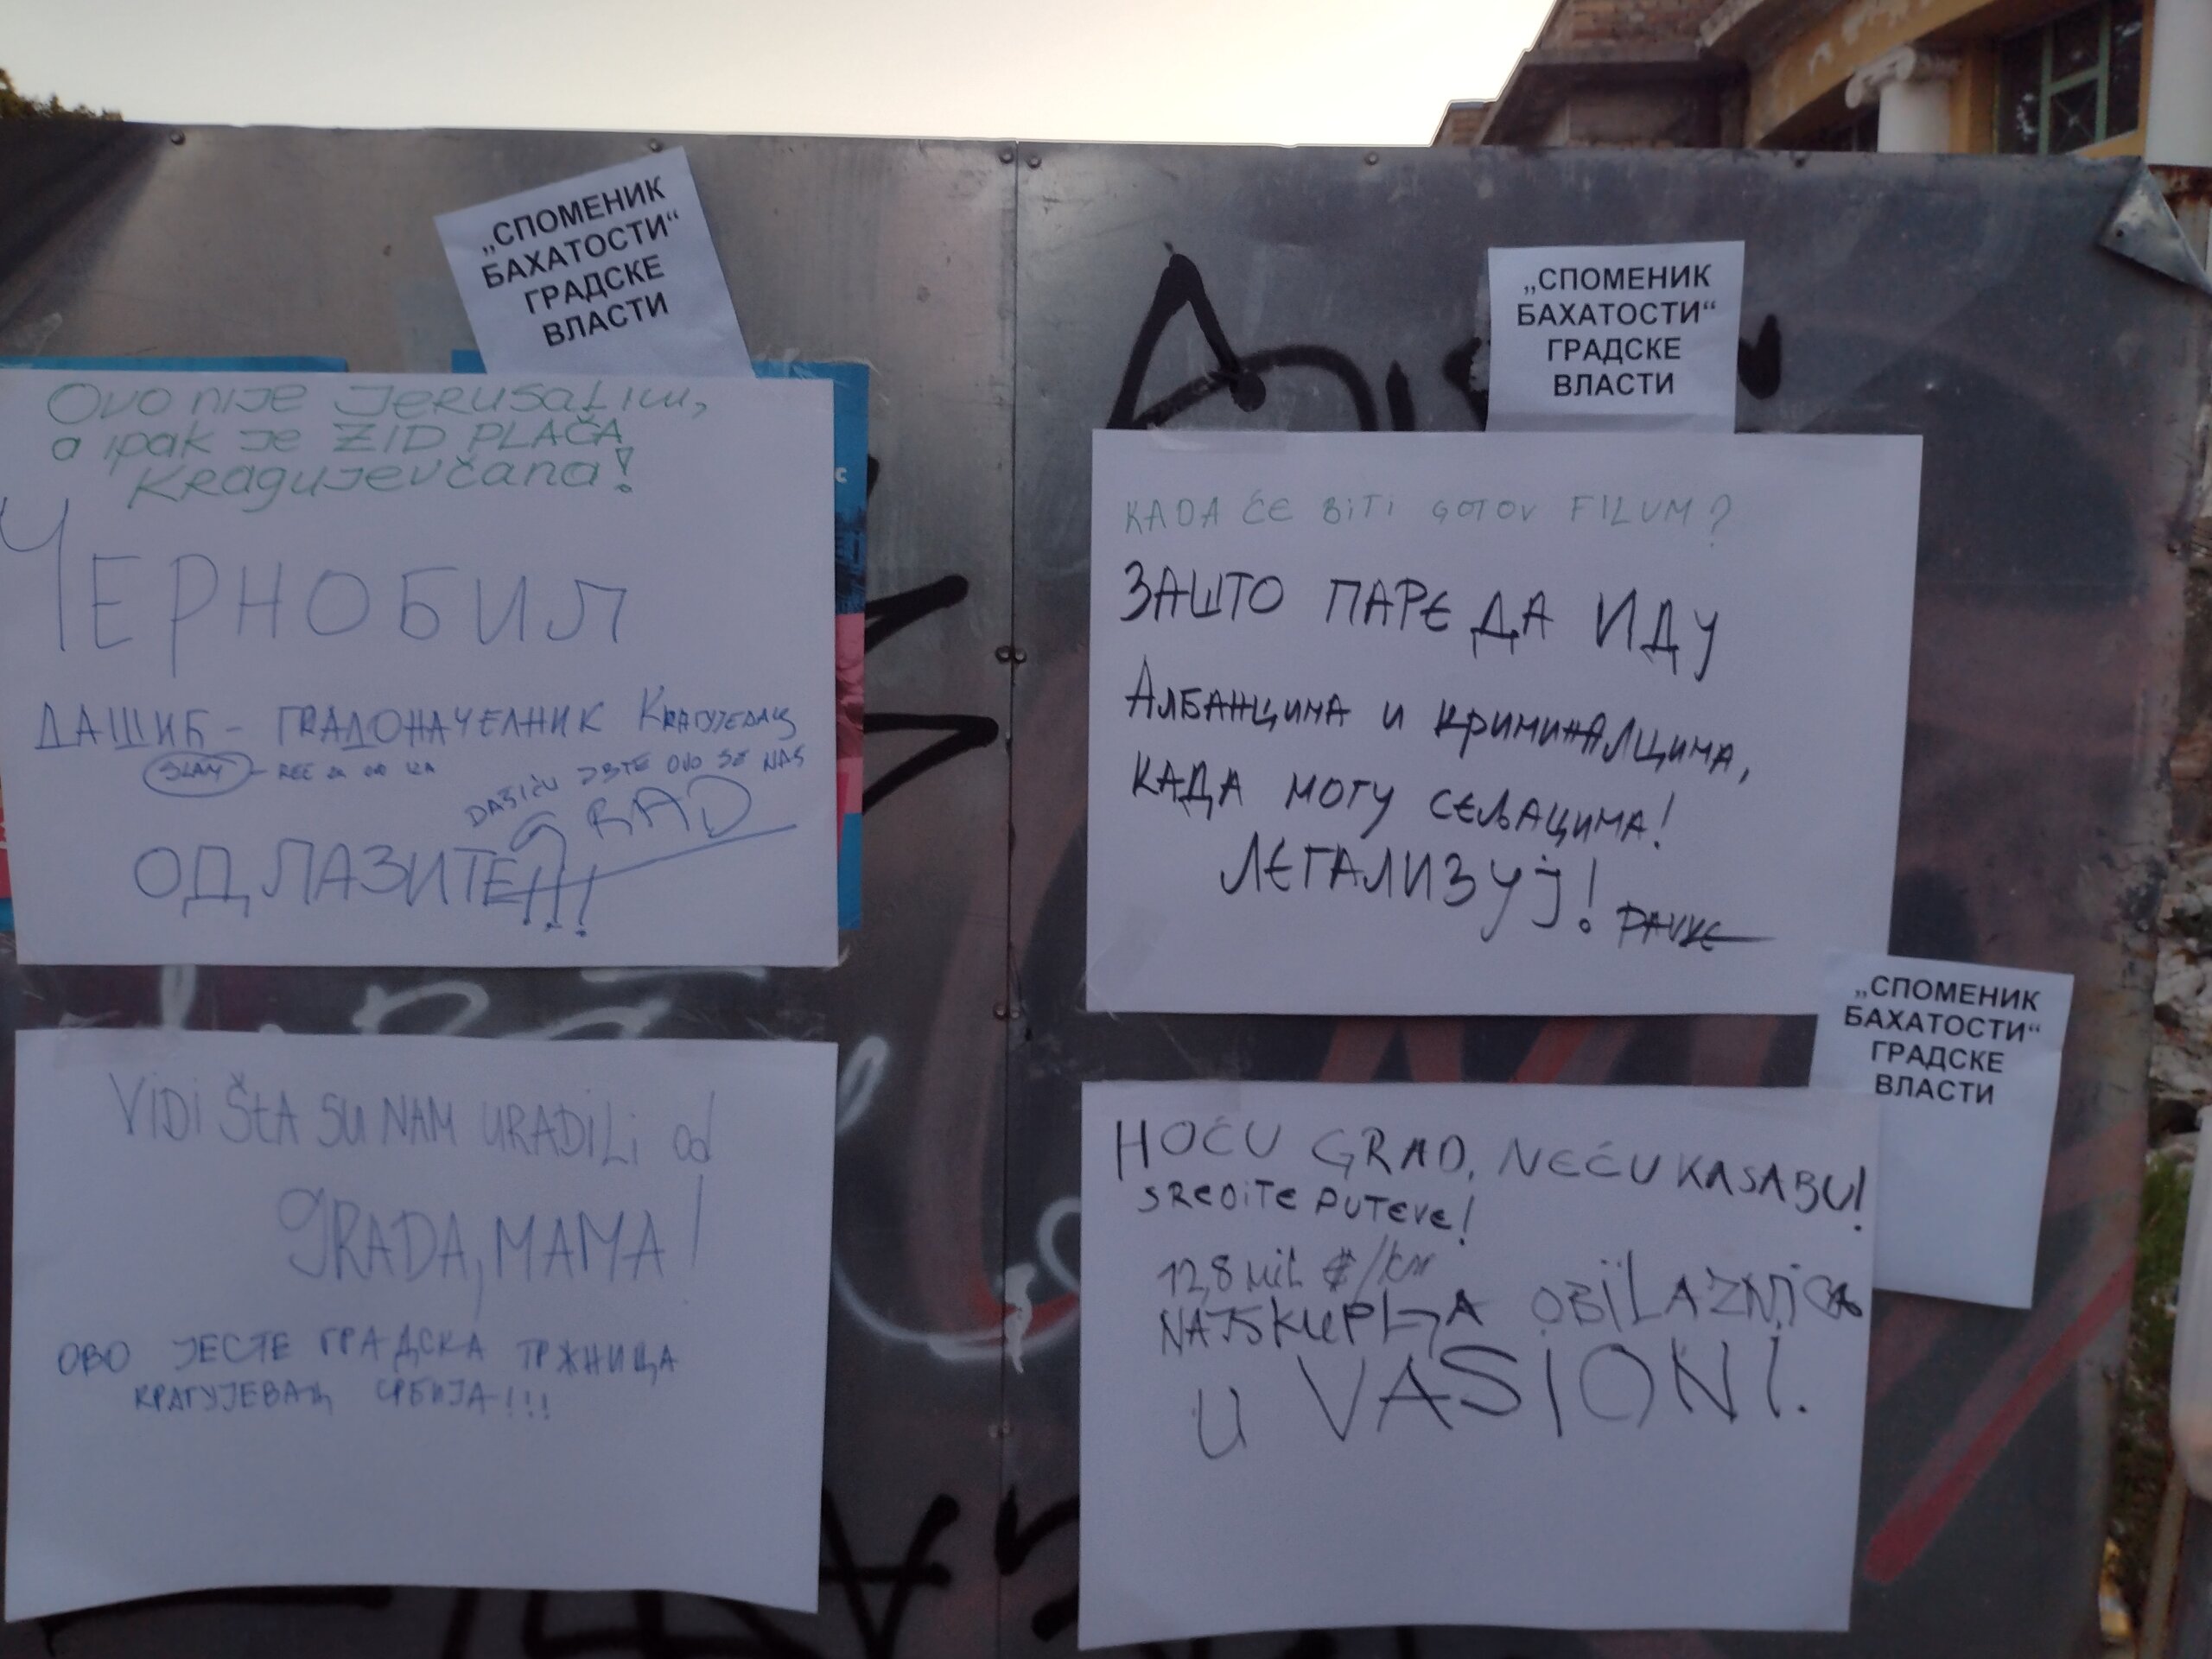 „СПОМЕНИК
БАХАТОСТИ“
ГРАДСКЕ
ВЛАСТИ
Ovo nije Jerusalim,
a ipak je ZID PLAČA
Kragujevčana!
ЧЕРНОБИЛ
ДАШИЋ - ГРАДОНАЧЕЛНИК
DAŠIĆU OVO JE NAŠ
GRAD
ОДЛАЗИТЕ!!!
VIDI ŠTA SU NAM URADILI od
GRADA, MAMA!
ОВО ЈЕСТЕ ГРАДСКА ТРЖНИЦА
КРАГУЈЕВАЦ СРБИЈА!!!
„СПОМЕНИК
БАХАТОСТИ“
ГРАДСКЕ
ВЛАСТИ
KADA ĆE BITI GOTOV FILUM?
ЗАШТО ПАРЕ ДА ИДУ
АЛБАНЦИМА И КРИМИНАЛЦИМА,
КАДА МОГУ СЕЉАЦИМА!
ЛЕГАЛИЗУЈ!
„СПОМЕНИК
БАХАТОСТИ“
ГРАДСКЕ
ВЛАСТИ
HOĆU GRAD, NEĆU KASABU!
SREDITE PUTEVE!
12,8 mil €/km
NAJSKUPLJA OBILAZNICA
U VASIONI.